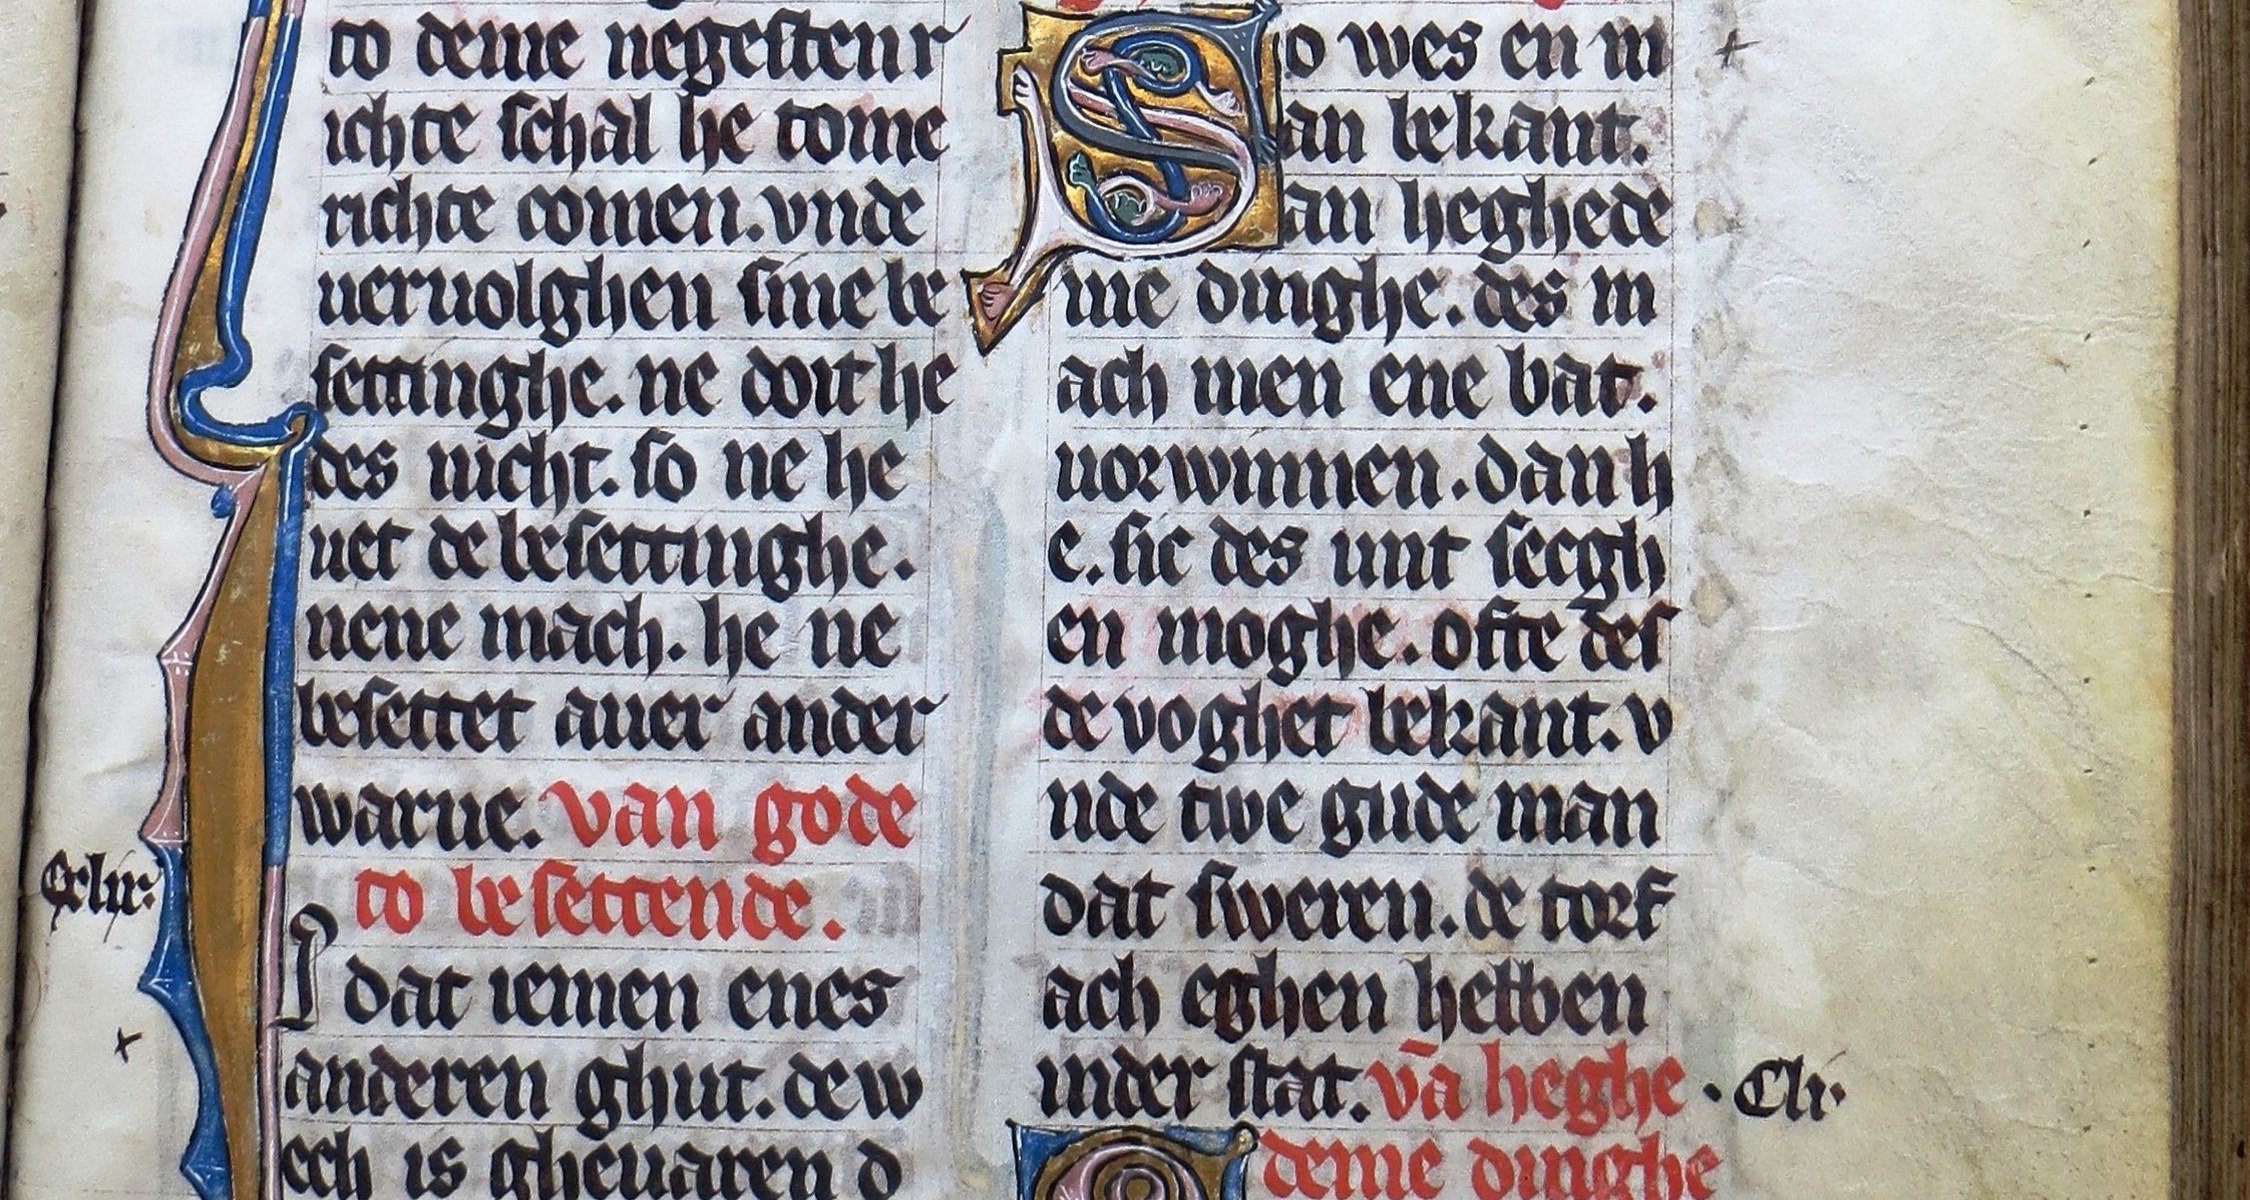 to deme negesten r
ichte schal he tome
richte comen. vnde
ueruolghen sine be
settinghe. ne doit he
des nicht. so ne he
uet de besettinghe.
nene mach. he ne
besettet auer ander
warue. van gode
to besettende.
dat iemen enes
anderen ghut. de w
ech is gheuaren d
So wes en m
an bekant.
an heghede
me dinghe. des m
ach men ene bat.
uorwinnen. dan h
e. sic des unt secgh
en moghe. ofte des
de voghet bekant. v
nde twe gude man
dat sweren. de torf
ach eghen hebben
inder stat. vā heghe
deme dinghe
· Cli·